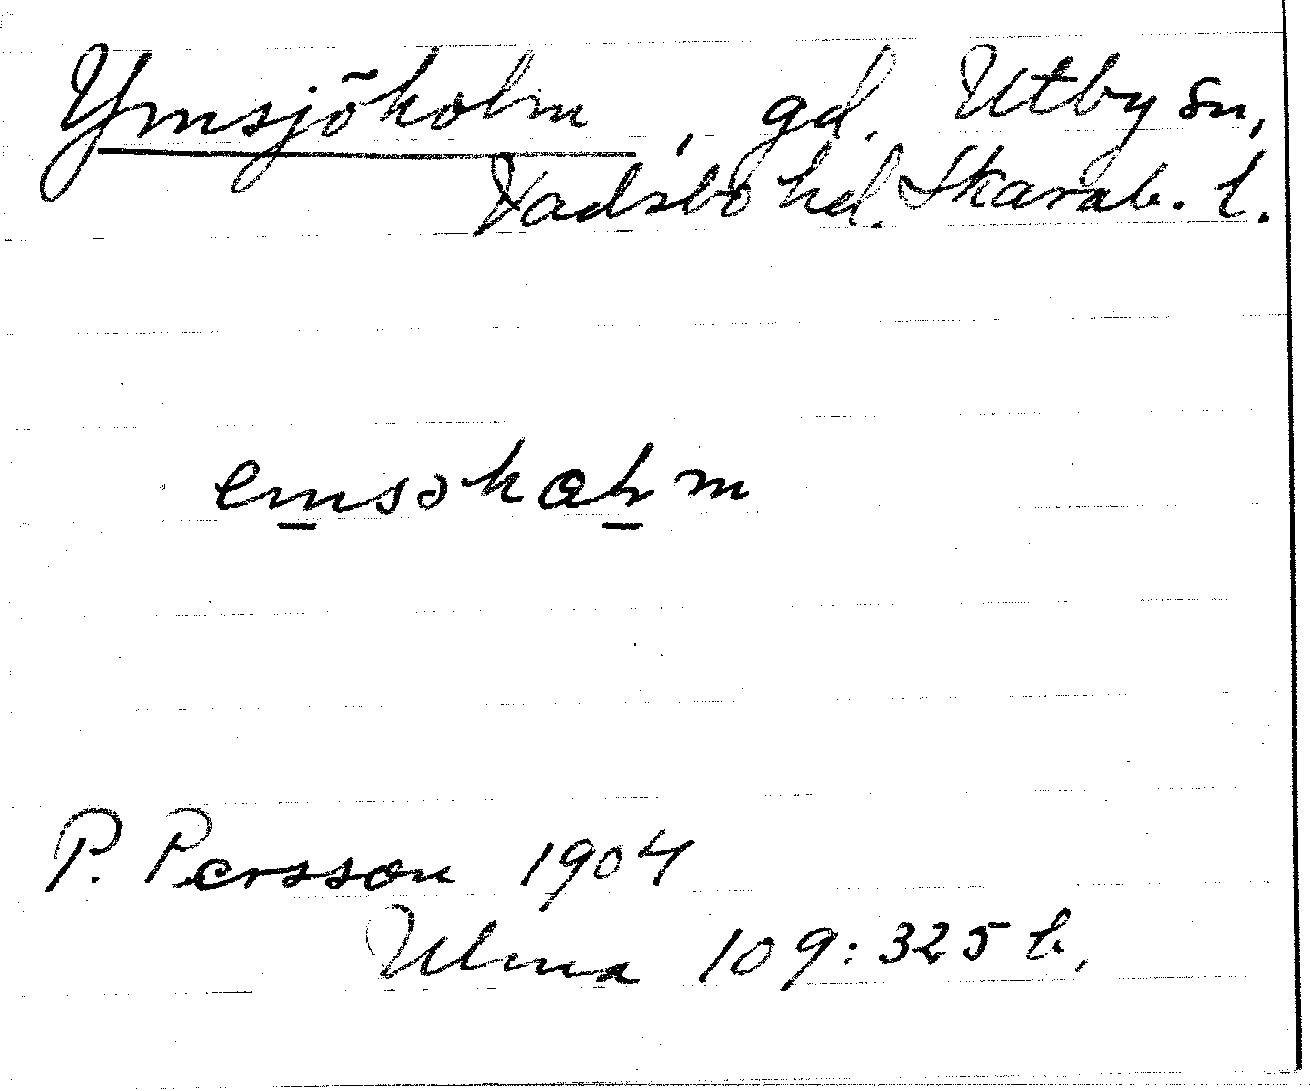 Ymsjöholm, gd. Utby sn,
Vadsbo hd. Skarab. l.
emsəkahm
P. Persson 1904
Ulma 109:325 b,